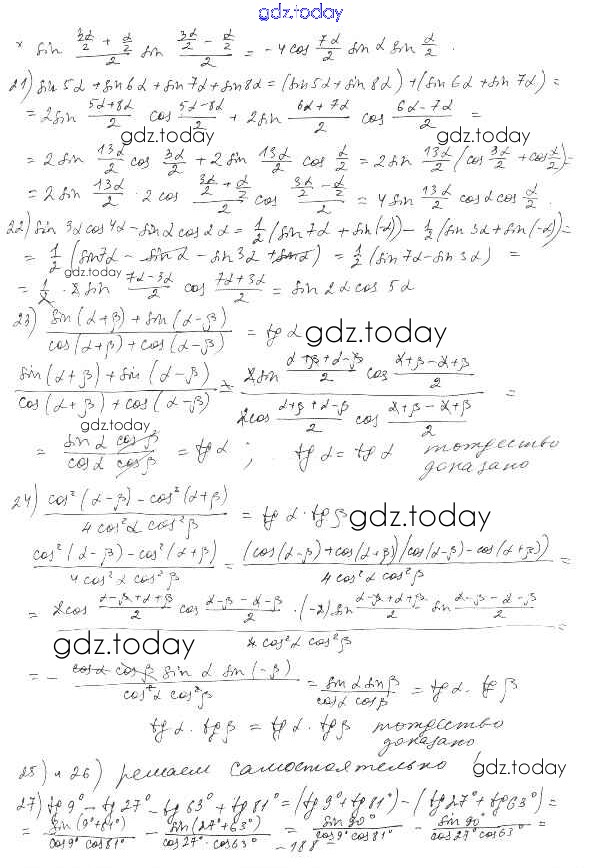 gdz.today
× sin (3α/2 + α/2)/2 sin (3α/2 − α/2)/2 = −4cos 7α/2 sin α sin α/2.
21) sin 5α + sin 6α + sin 7α + sin 8α = (sin 5α + sin 8α) + (sin 6α + sin 7α) =
= 2 sin (5α+8α)/2 cos (5α−8α)/2 + 2 sin (6α+7α)/2 cos (6α−7α)/2 =
gdz.today gdz.today
= 2 sin 13α/2 cos 3α/2 + 2 sin 13α/2 cos α/2 = 2 sin 13α/2 (cos 3α/2 + cos α/2) =
= 2 sin 13α/2 · 2 cos (3α/2 + α/2)/2 cos (3α/2 − α/2)/2 = 4 sin 13α/2 cos α cos α/2.
22) sin 3α cos 4α − sin α cos 2α = 1/2 (sin 7α + sin(−α)) − 1/2 (sin 3α + sin(−α)) =
= 1/2 (sin 7α − sin α − sin 3α + sin α) = 1/2 (sin 7α − sin 3α) =
gdz.today
= 1/2 · 2 sin (7α−3α)/2 cos (7α+3α)/2 = sin 2α cos 5α
23) (sin(α+β) + sin(α−β))/(cos(α+β) + cos(α−β)) = tg α gdz.today
(sin(α+β) + sin(α−β))/(cos(α+β) + cos(α−β)) = (2 sin (α+β+α−β)/2 cos (α+β−α+β)/2)/(2 cos (α+β+α−β)/2 cos (α+β−α+β)/2) =
gdz.today
= (sin α cos β)/(cos α cos β) = tg α ; tg α = tg α тождество
доказано
24) (cos²(α−β) − cos²(α+β))/(4 cos²α cos²β) = tg α · tg β gdz.today
(cos²(α−β) − cos²(α+β))/(4 cos²α cos²β) = ((cos(α−β) + cos(α+β))(cos(α−β) − cos(α+β)))/(4 cos²α cos²β) =
= (2 cos (α−β+α+β)/2 cos (α−β−α−β)/2 · (−2) sin (α−β+α+β)/2 sin (α−β−α−β)/2)/(4 cos²α cos²β) =
gdz.today
= − (cos α cos β sin α sin(−β))/(cos²α cos²β) = (sin α sin β)/(cos α cos β) = tg α · tg β
tg α · tg β = tg α · tg β тождество
доказано
25) и 26) решаем самостоятельно !
gdz.today
27) tg 9° − tg 27° − tg 63° + tg 81° = (tg 9° + tg 81°) − (tg 27° + tg 63°) =
= sin(9°+81°)/(cos 9° cos 81°) − sin(27°+63°)/(cos 27° · cos 63°) = sin 90°/(cos 9° cos 81°) − sin 90°/(cos 27° cos 63°) =
- 188 -